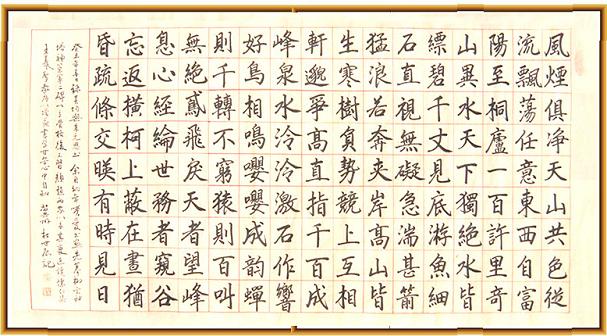 風煙俱淨天山共色從
流飄蕩任意東西自富
陽至桐廬一百許里奇
山異水天下獨絕水皆
縹碧千丈見底游魚細
石直視無礙急湍甚箭
猛浪若奔夾岸高山皆
生寒樹負勢競上互相
軒邈爭高直指千百成
峰泉水泠泠激石作響
好鳥相鳴嚶嚶成韵蟬
則千轉不窮猿則百叫
無絕鳶飛戾天者望峰
息心經綸世務者窺谷
忘返橫柯上蔽在晝猶
昏疏條交暎有時見日